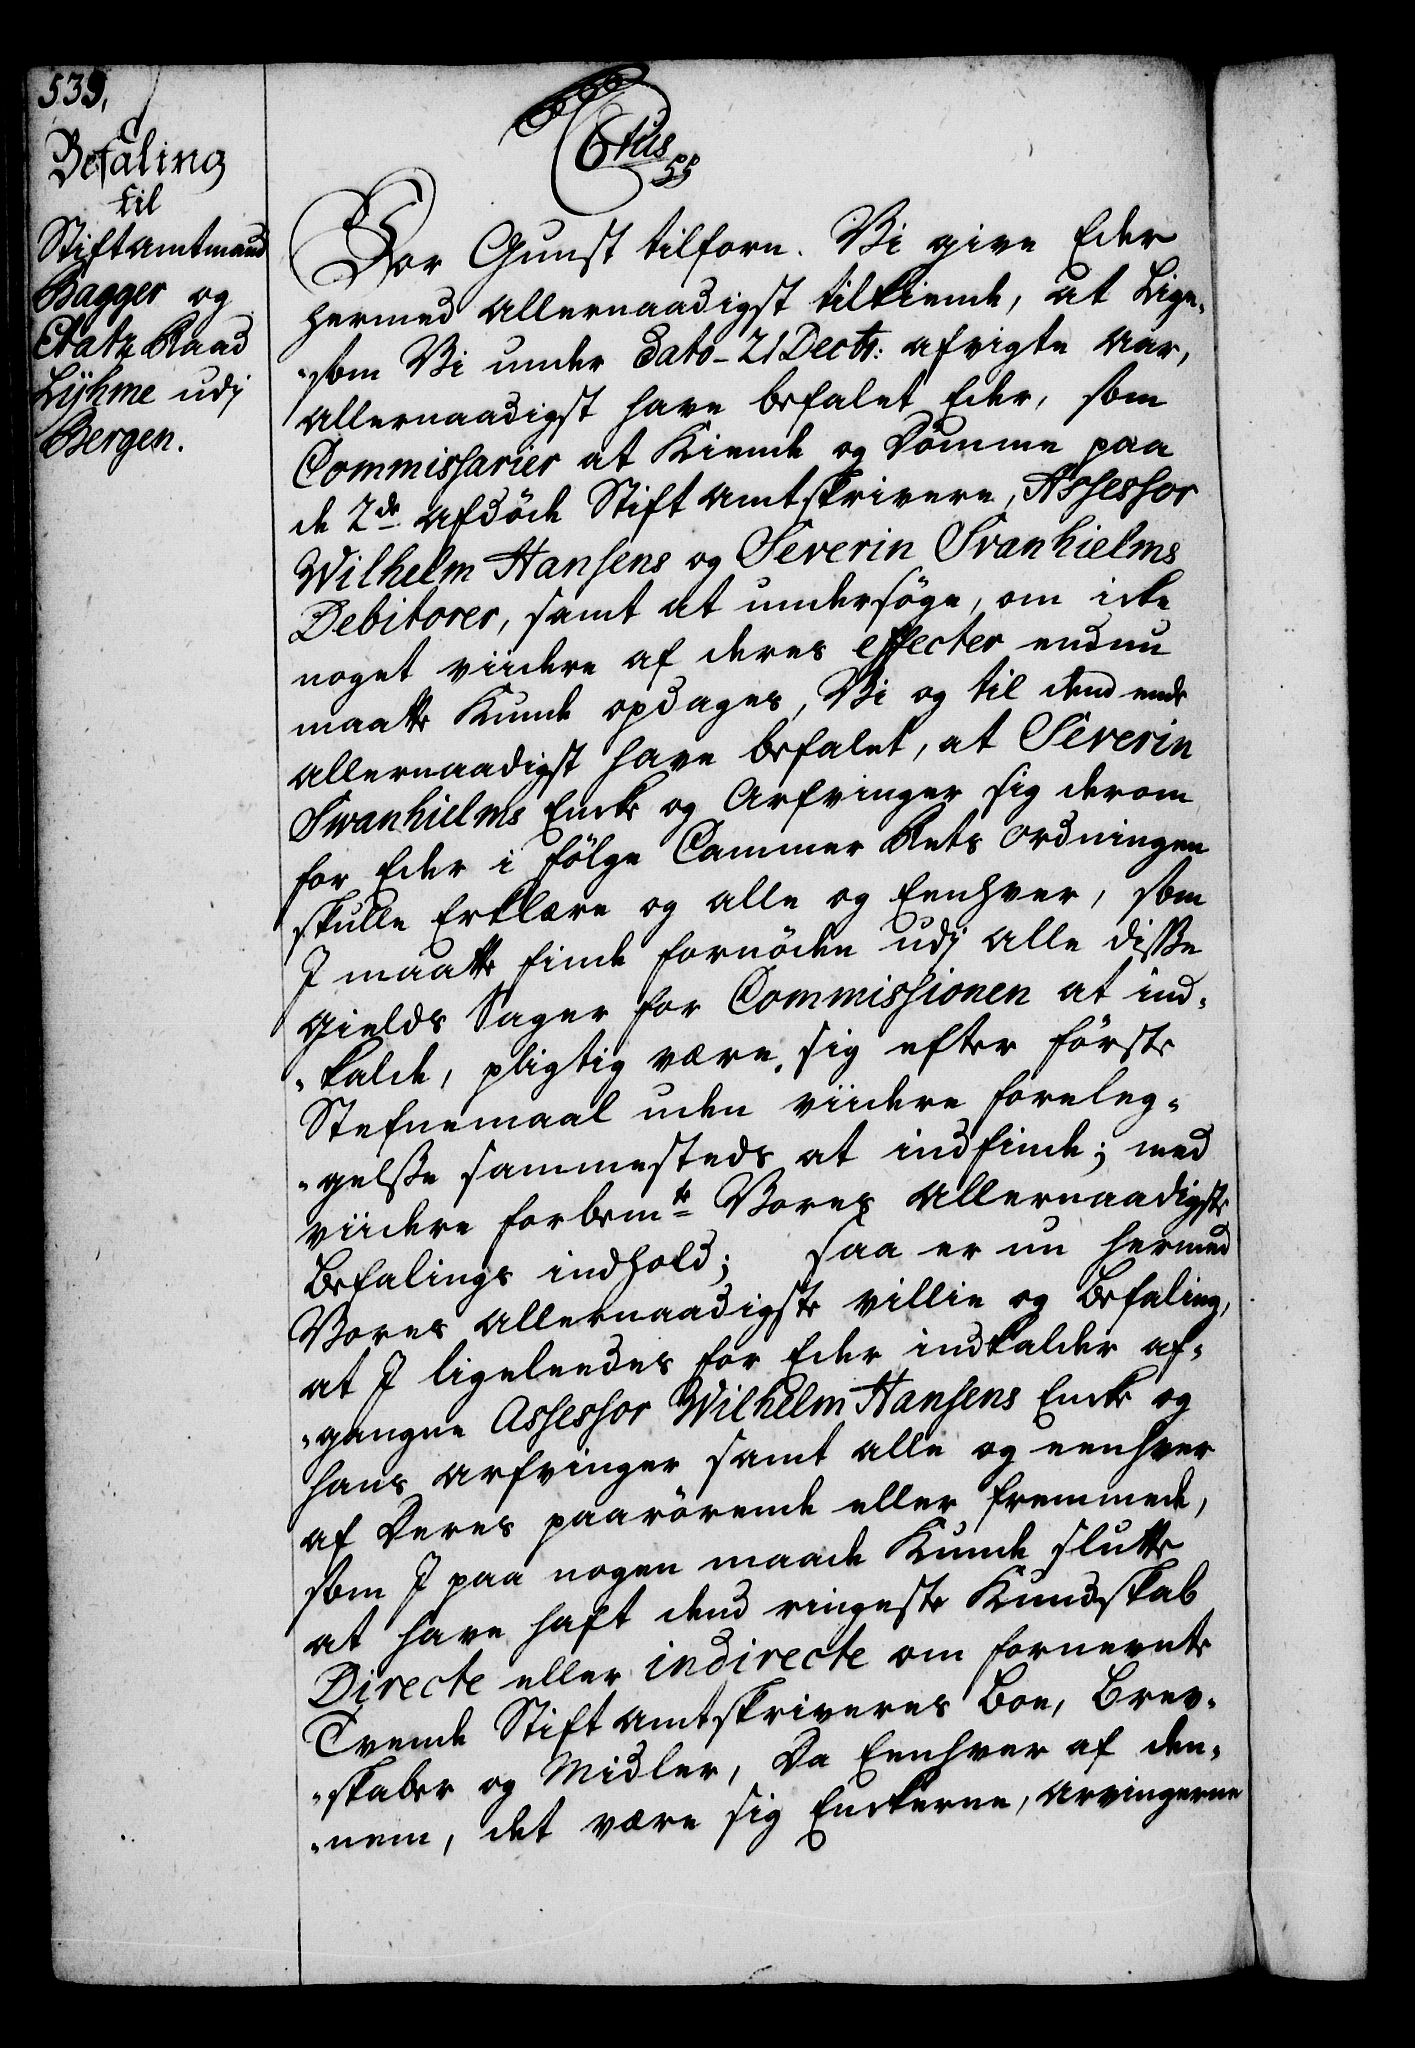 539,
Befaling
til
Stiftamtmand
Bagger og
Etatz Raad
Lÿhme udj
Bergen.
C6tus
Vor Gunst tilforn. Vi give Eder
hermed allernaadigst tilkiende, at Lige-
-som Vi under Dato 21 Decbr: afvigte Aar,
allernaadigst have befalet Eder, som
Commissarier at Kiende og Dömme paa
de 2de afdöde Stiftamtskrivere, Assessor
Wilhelm Hansens og Severin Svanhielms
Debitorer, samt at undersöge, om icke
noget viidere af deres effecter endnu
maatte Kunde opdages, Vi og til dend ende
allernaadigst have befalet, at Severin
Svanhielms Encke og Arfvinger sig derom
for Eder i fölge Cammer Rets Ordningen
skulle Erklære og alle og Eenhver, som
J maatte finde fornöden udj alle diße
gields Sager for Commissionen at ind-
-kalde, pligtig være, sig efter förste
Stefnemaal uden viidere foreleg-
-gelße sammesteds at indfinde; med
viidere forbemte Vores Allernaadigste
Befalings indhold; saa er nu hermed
Vores allernaadigste villie og befaling,
at J ligeleedes for Eder indkalder af-
-gangne Assessor Wilhelm Hansens Encke og
hans arfvinger samt alle og eenhver
af Deres paarörende eller fremmede,
som J paa nogen maade Kunde slutte
at have haft dend ringeste Kundskab
Directe eller indirecte om fornevnte
Tvende Stiftamtskriveres Boe, Brev-
-skaber og Midler, Da Eenhver af den-
-nem, det være sig Enckerne, arvingerne